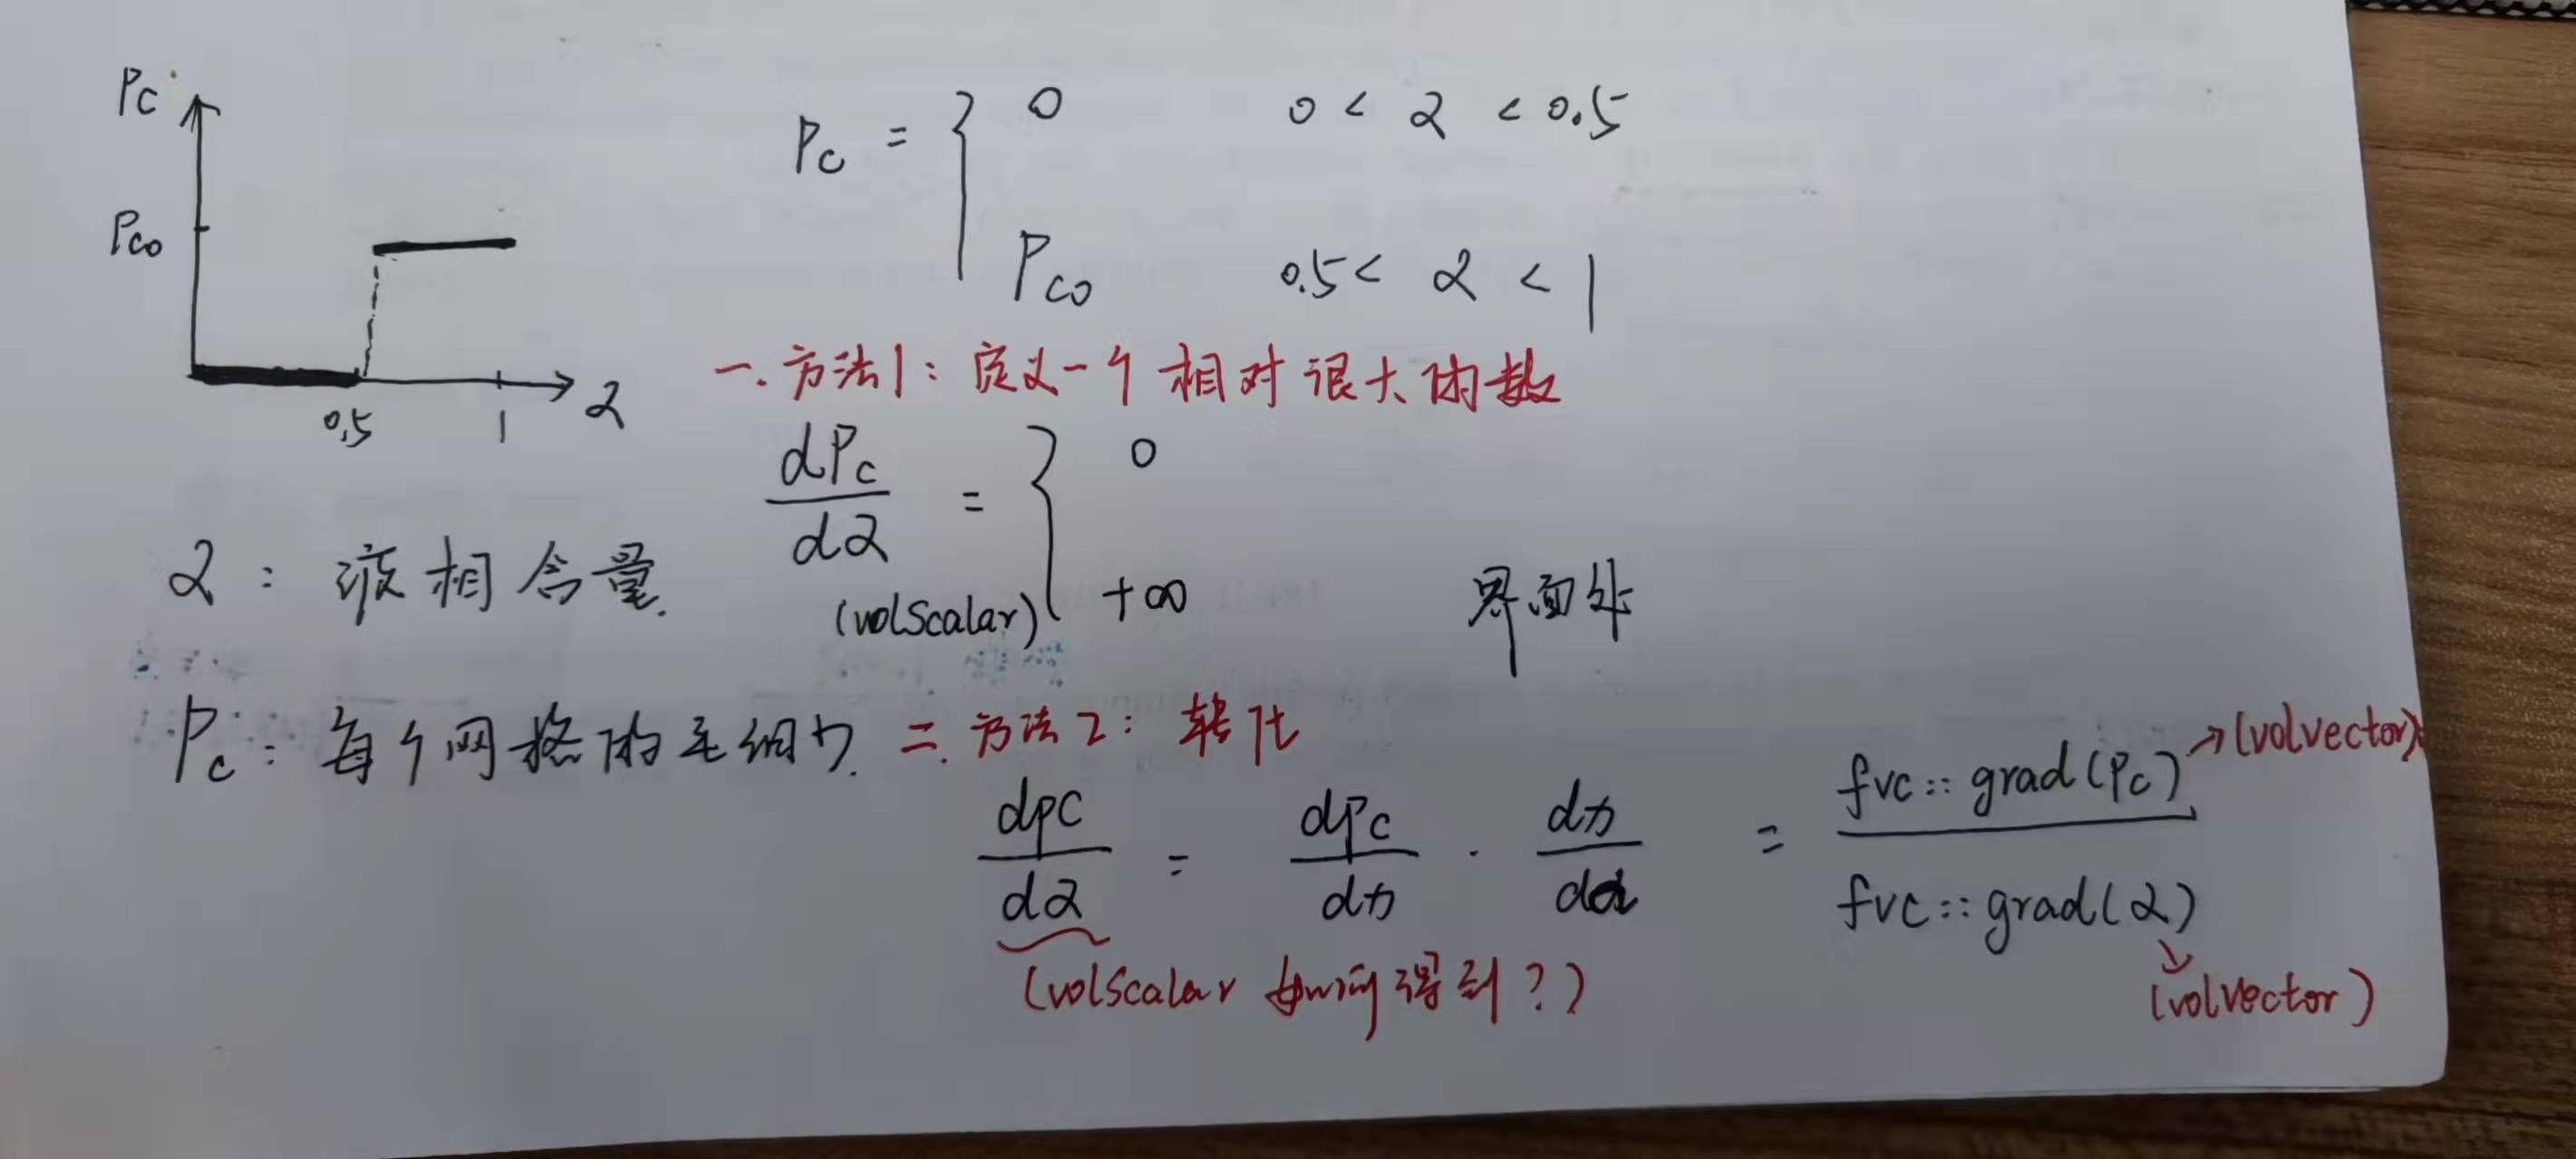 Pc
Pco
0.5
1
α
Pc = { 0 0 < α < 0.5
Pco 0.5 < α < 1
一. 方法1: 定义一个相对很大的数
dPc/dα = { 0
+∞ 界面处
(volScalar)
α: 液相含量.
Pc: 每个网格的毛细力.
二. 方法2: 转化
dpc/dα = dPc/dn · dn/dα = fvc::grad(Pc)/fvc::grad(α)
→(volvector)
(volScalar 如何得到?)
(volvector)